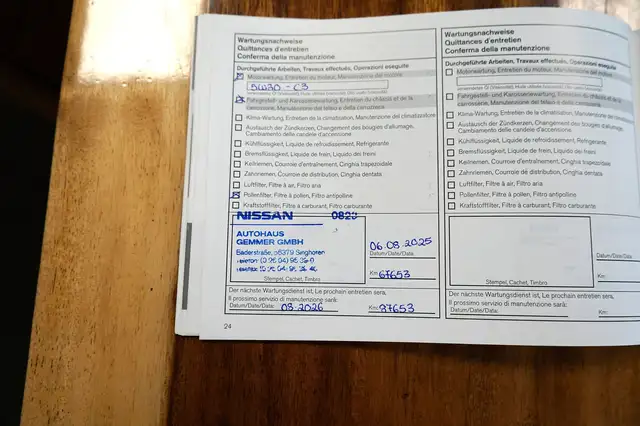 Wartungsnachweise
Quittances d'entretien
Conferma della manutenzione
Durchgeführte Arbeiten, Travaux effectués, Operazioni eseguite
Motorwartung, Entretien du moteur, Manutenzione del motore
5W30 - C3
Fahrgestell- und Karosseriewartung, Entretien du châssis et de la
carrosserie, Manutenzione del telaio e della carrozzeria
Klima-Wartung, Entretien de la climatisation, Manutenzione del climatizzatore
Austausch der Zündkerzen, Changement des bougies d'allumage,
Cambiamento delle candele d'accensione
Kühlflüssigkeit, Liquide de refroidissement, Refrigerante
Bremsflüssigkeit, Liquide de frein, Liquido dei freni
Keilriemen, Courroie d'entraînement, Cinghia trapezoidale
Zahnriemen, Courroie de distribution, Cinghia dentata
Luftfilter, Filtre à air, Filtro aria
Pollenfilter, Filtre à pollen, Filtro antipolline
Kraftstofffilter, Filtre à carburant, Filtro carburante
NISSAN 0823
AUTOHAUS
GEMMER GMBH
Stempel, Cachet, Timbro
06.08.2025
Datum/Date/Data:
Km: 67653
Der nächste Wartungsdienst ist, Le prochain entretien sera,
Il prossimo servizio di manutenzione sarà:
Datum/Date/Data: 08.2026 Km: 97653
24
Wartungsnachweise
Quittances d'entretien
Conferma della manutenzione
Durchgeführte Arbeiten, Travaux effectués, Operazioni eseguite
Motorwartung, Entretien du moteur, Manutenzione del motore
Fahrgestell- und Karosseriewartung, Entretien du châssis et de la
carrosserie, Manutenzione del telaio e della carrozzeria
Klima-Wartung, Entretien de la climatisation, Manutenzione del
Austausch der Zündkerzen, Changement des bougies
Cambiamento delle candele d'accensione
Kühlflüssigkeit, Liquide de refroidissement, Refrigerante
Bremsflüssigkeit, Liquide de frein, Liquido dei freni
Keilriemen, Courroie d'entraînement, Cinghia trapezoidale
Zahnriemen, Courroie de distribution, Cinghia dentata
Luftfilter, Filtre à air, Filtro aria
Pollenfilter, Filtre à pollen, Filtro antipolline
Kraftstofffilter, Filtre à carburant, Filtro carburante
Stempel, Cachet, Timbro
Datum/Date/Data:
Km:
Der nächste Wartungsdienst ist, Le prochain entretien sera,
Il prossimo servizio di manutenzione sarà:
Datum/Date/Data: Km: